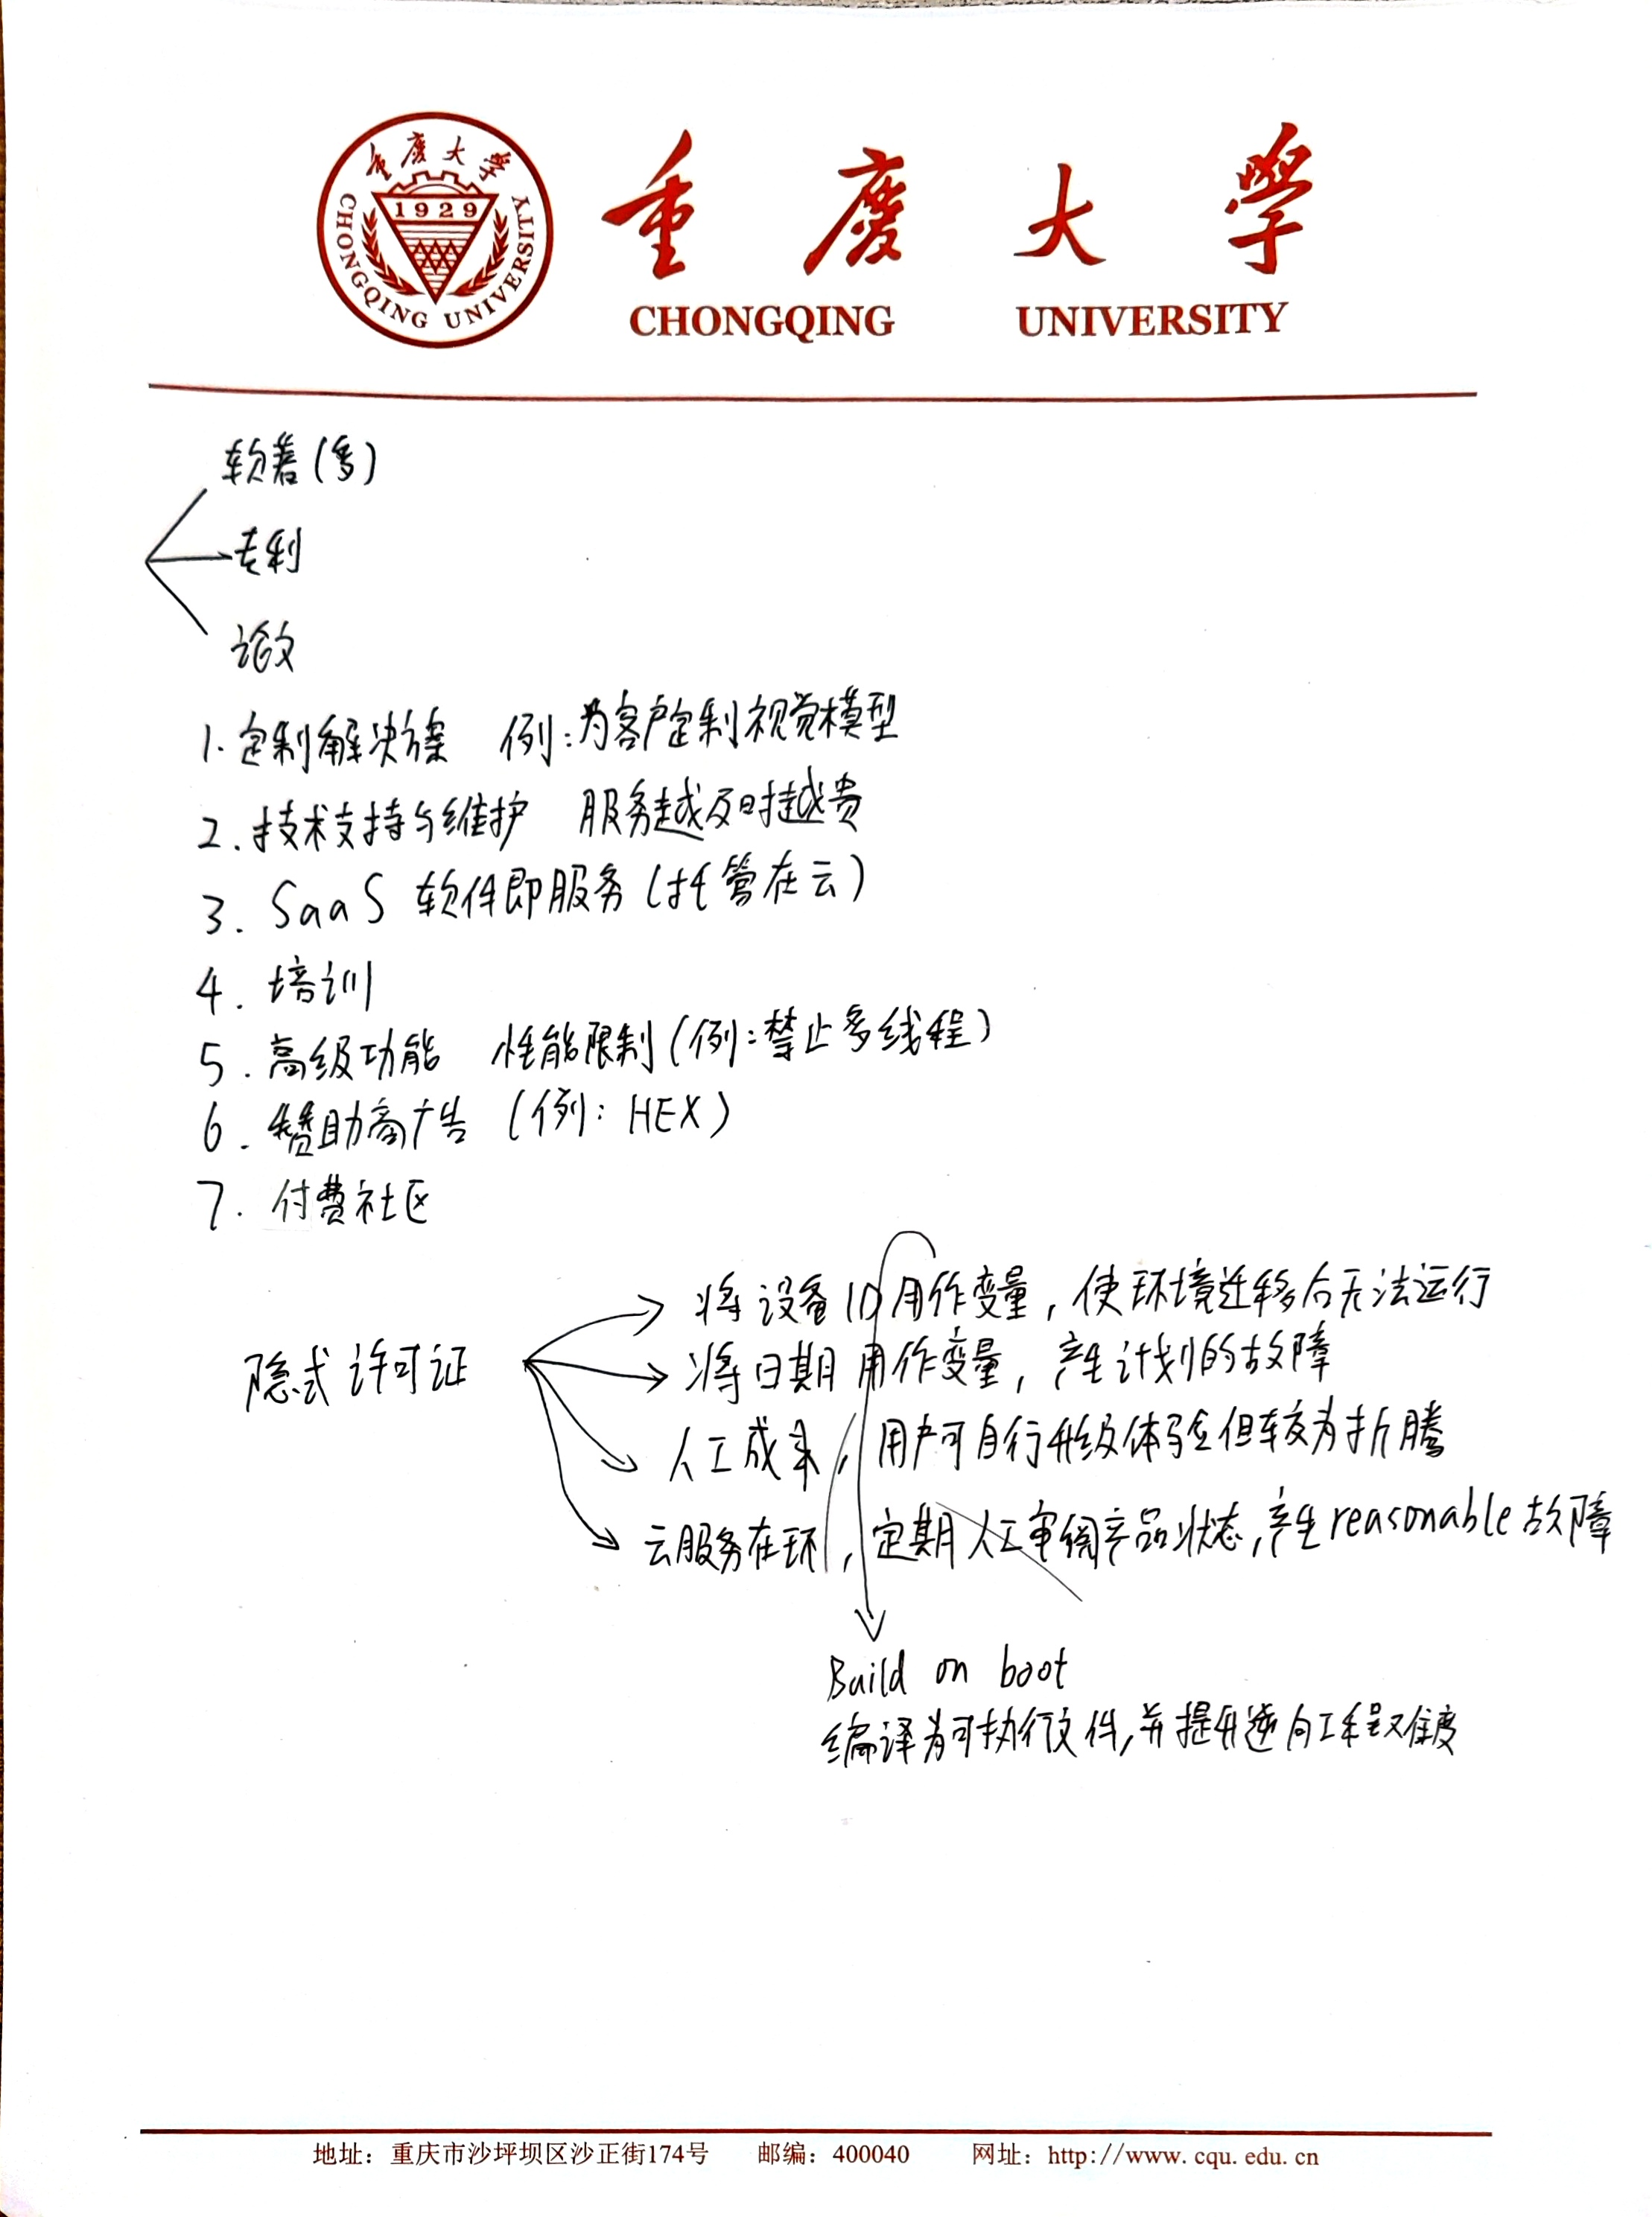 重庆大学
CHONGQING UNIVERSITY
1929
重慶大學
CHONGQING UNIVERSITY
软著(多)
专利
论文
1. 定制解决方案 例:为客户定制视觉模型
2. 技术支持与维护 服务越及时越贵
3. SaaS 软件即服务(托管在云)
4. 培训
5. 高级功能 性能限制(例:禁止多线程)
6. 赞助商广告 (例: HEX)
7. 付费社区
隐式许可证
将设备ID用作变量, 使环境迁移后无法运行
将日期用作变量, 产生计划的故障
人工成本, 用户可自行升级体验但较为折腾
云服务在环, 定期人工审阅产品状态,产生reasonable故障
Build on boot
编译为可执行文件,并提升逆向工程难度
地址：重庆市沙坪坝区沙正街174号 邮编：400040 网址：http://www.cqu.edu.cn